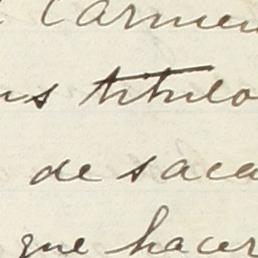 Carmen
us titulo
de saca
que hacer